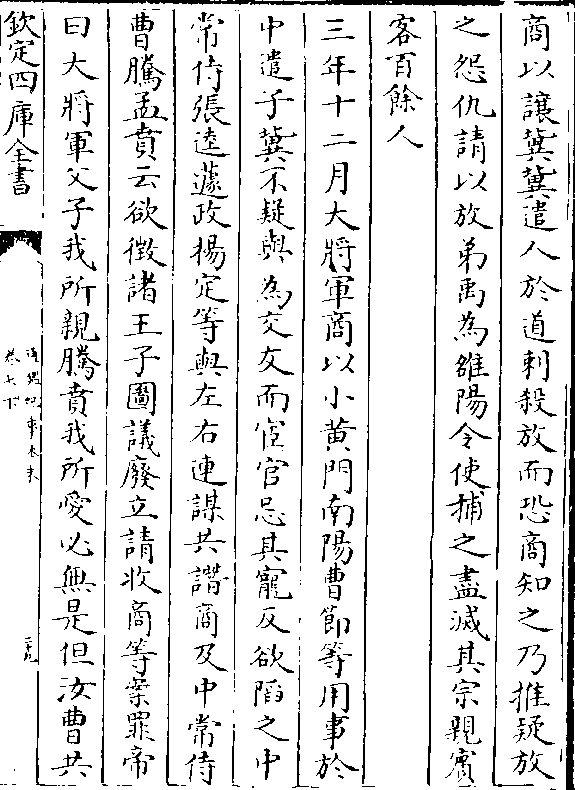 商以讓冀冀遣人於道刺殺放而恐商知之乃推疑放
之怨仇請以放弟禹為雒陽令使捕之盡滅其宗親賓
客百餘人
三年十二月大將軍商以小黄門南陽曹節等用事於
中遣子冀不疑與為交友而宦官忌其寵反欲陷之中
常侍張逵蘧政楊定等與左右連謀共譖商及中常侍
曹騰孟賁云欲徵諸王子圖議廢立請收商等案罪帝
曰大將軍父子我所親騰賁我所愛必無是但汝曹共
欽定四庫全書
通鑑紀事本末
卷七下